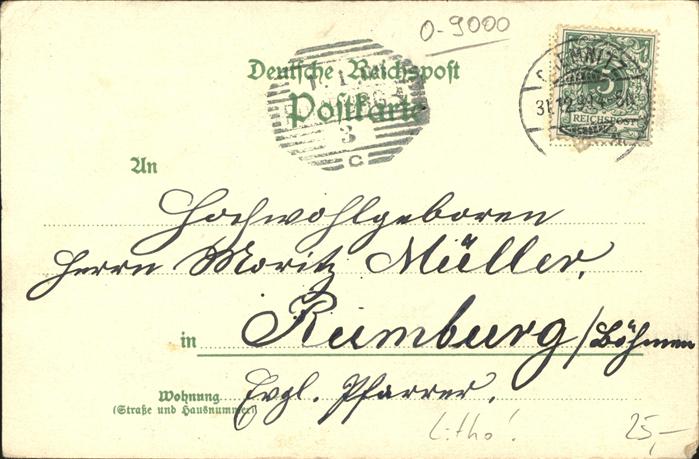 O-9000
CHEMNITZ
5
REICHSPOST
Deutsche Reichspost
Postkarte
3
C
An
Hochwohlgeboren
Herrn Moritz Müller,
in Rumburg/Böhmen
Wohnung
(Straße und Hausnummer)
Evgl. Pfarrer.
Litho!
25,-